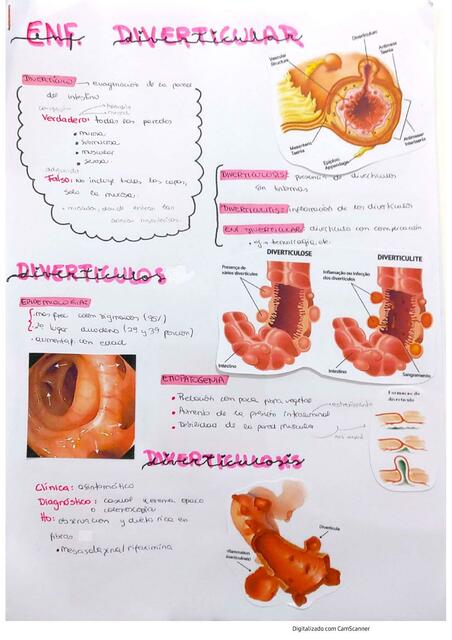 ENF. DIVERTICULAR
DIVERTÍCULO → evaginación de la pared
del intestino
Verdadero: todas las paredes
• mucosa
• submucosa
• muscular
• serosa
adquirido
Falso: No incluye todas las capas,
solo la mucosa.
Diverticulum
Vascular Structure
Antimesenteric Taenia
Mesenteric Taenia
Epiploic Appendage
DIVERTICULOSIS: presencia de divertículos
sin síntomas
DIVERTICULITIS: inflamación de los divertículos
ENF DIVERTICULAR: divertículo con complicación
• ej → hemorragia, etc.
DIVERTÍCULOS
EPIDEMIOLOGÍA:
• más frec colon sigmoides (95%)
• 2º lugar duodeno (2ª y 3ª porción)
• aumenta f. con edad
DIVERTICULOSE
DIVERTICULITE
Presença de vários divertículos
Inflamação ou infecção dos divertículos
Intestino
Intestino
Sangramento
ETIOPATOGENIA
• Relación con poca fibra vegetal
• Aumento de la presión intraluminal → estreñimiento
• Debilidad de la pared muscular
Formação do divertículo
DIVERTICULOSIS
Clínica: asintomático
Diagnóstico: casual x enema opaco
o colonoscopia
Tto: observación y dieta rica en
fibras
• mesalazina / rifaximina
Diverticula
Inflammation (diverticulitis)
Digitalizado com CamScanner